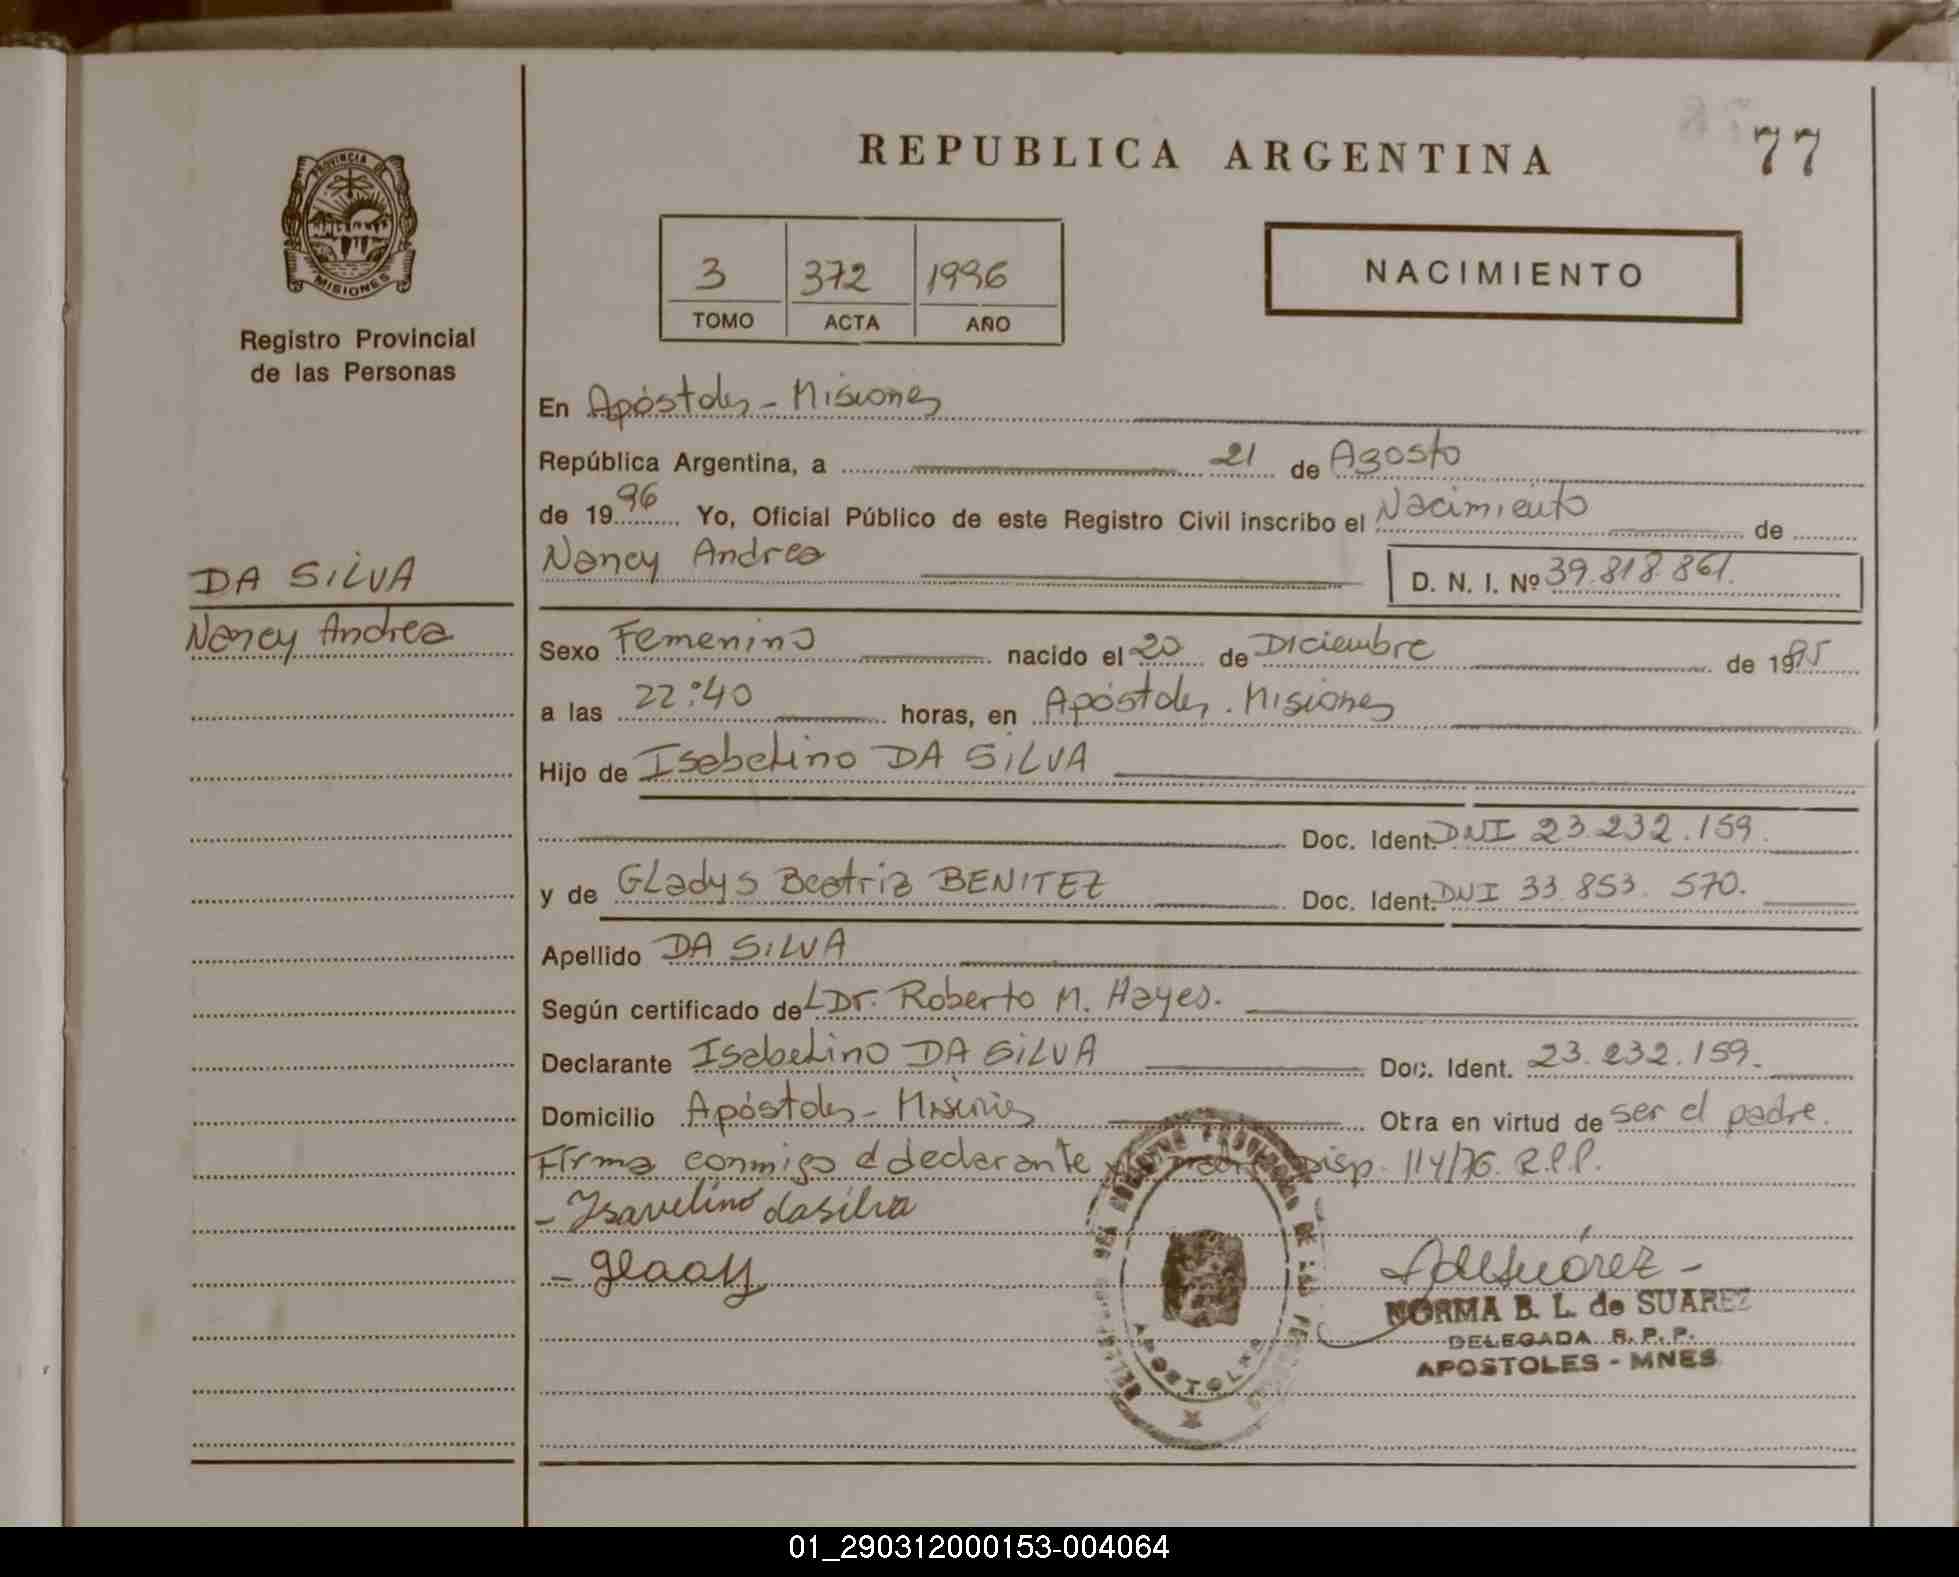 REPUBLICA ARGENTINA
77
PROVINCIA
MISIONES
Registro Provincial
de las Personas
3 372 1996
TOMO ACTA AÑO
NACIMIENTO
DA SILVA
Nancy Andrea
En Apóstoles - Misiones
República Argentina, a 21 de Agosto
de 1996 Yo, Oficial Público de este Registro Civil inscribo el Nacimiento de
Nancy Andrea D. N. I. Nº 39.818.861.
Sexo Femenino nacido el 20 de Diciembre de 1995
a las 22:40 horas, en Apóstoles. Misiones
Hijo de Isabelino DA SILVA
Doc. Ident. DNI 23.232.159.
y de GLadys Beatriz BENITEZ Doc. Ident. DNI 33.853.570.
Apellido DA SILVA
Según certificado del Dr. Roberto M. Hayes.
Declarante Isabelino DA SILVA Doc. Ident. 23.232.159.
Domicilio Apóstoles - Misiones Obra en virtud de ser el padre.
Firma conmigo el declarante y madre Disp. 114/76. R.P.P.
- Isavelino dasilva
- glaady
APOSTOLES
NORMA B. L. de SUAREZ
DELEGADA R. P. P.
APOSTOLES - MNES
01_290312000153-004064